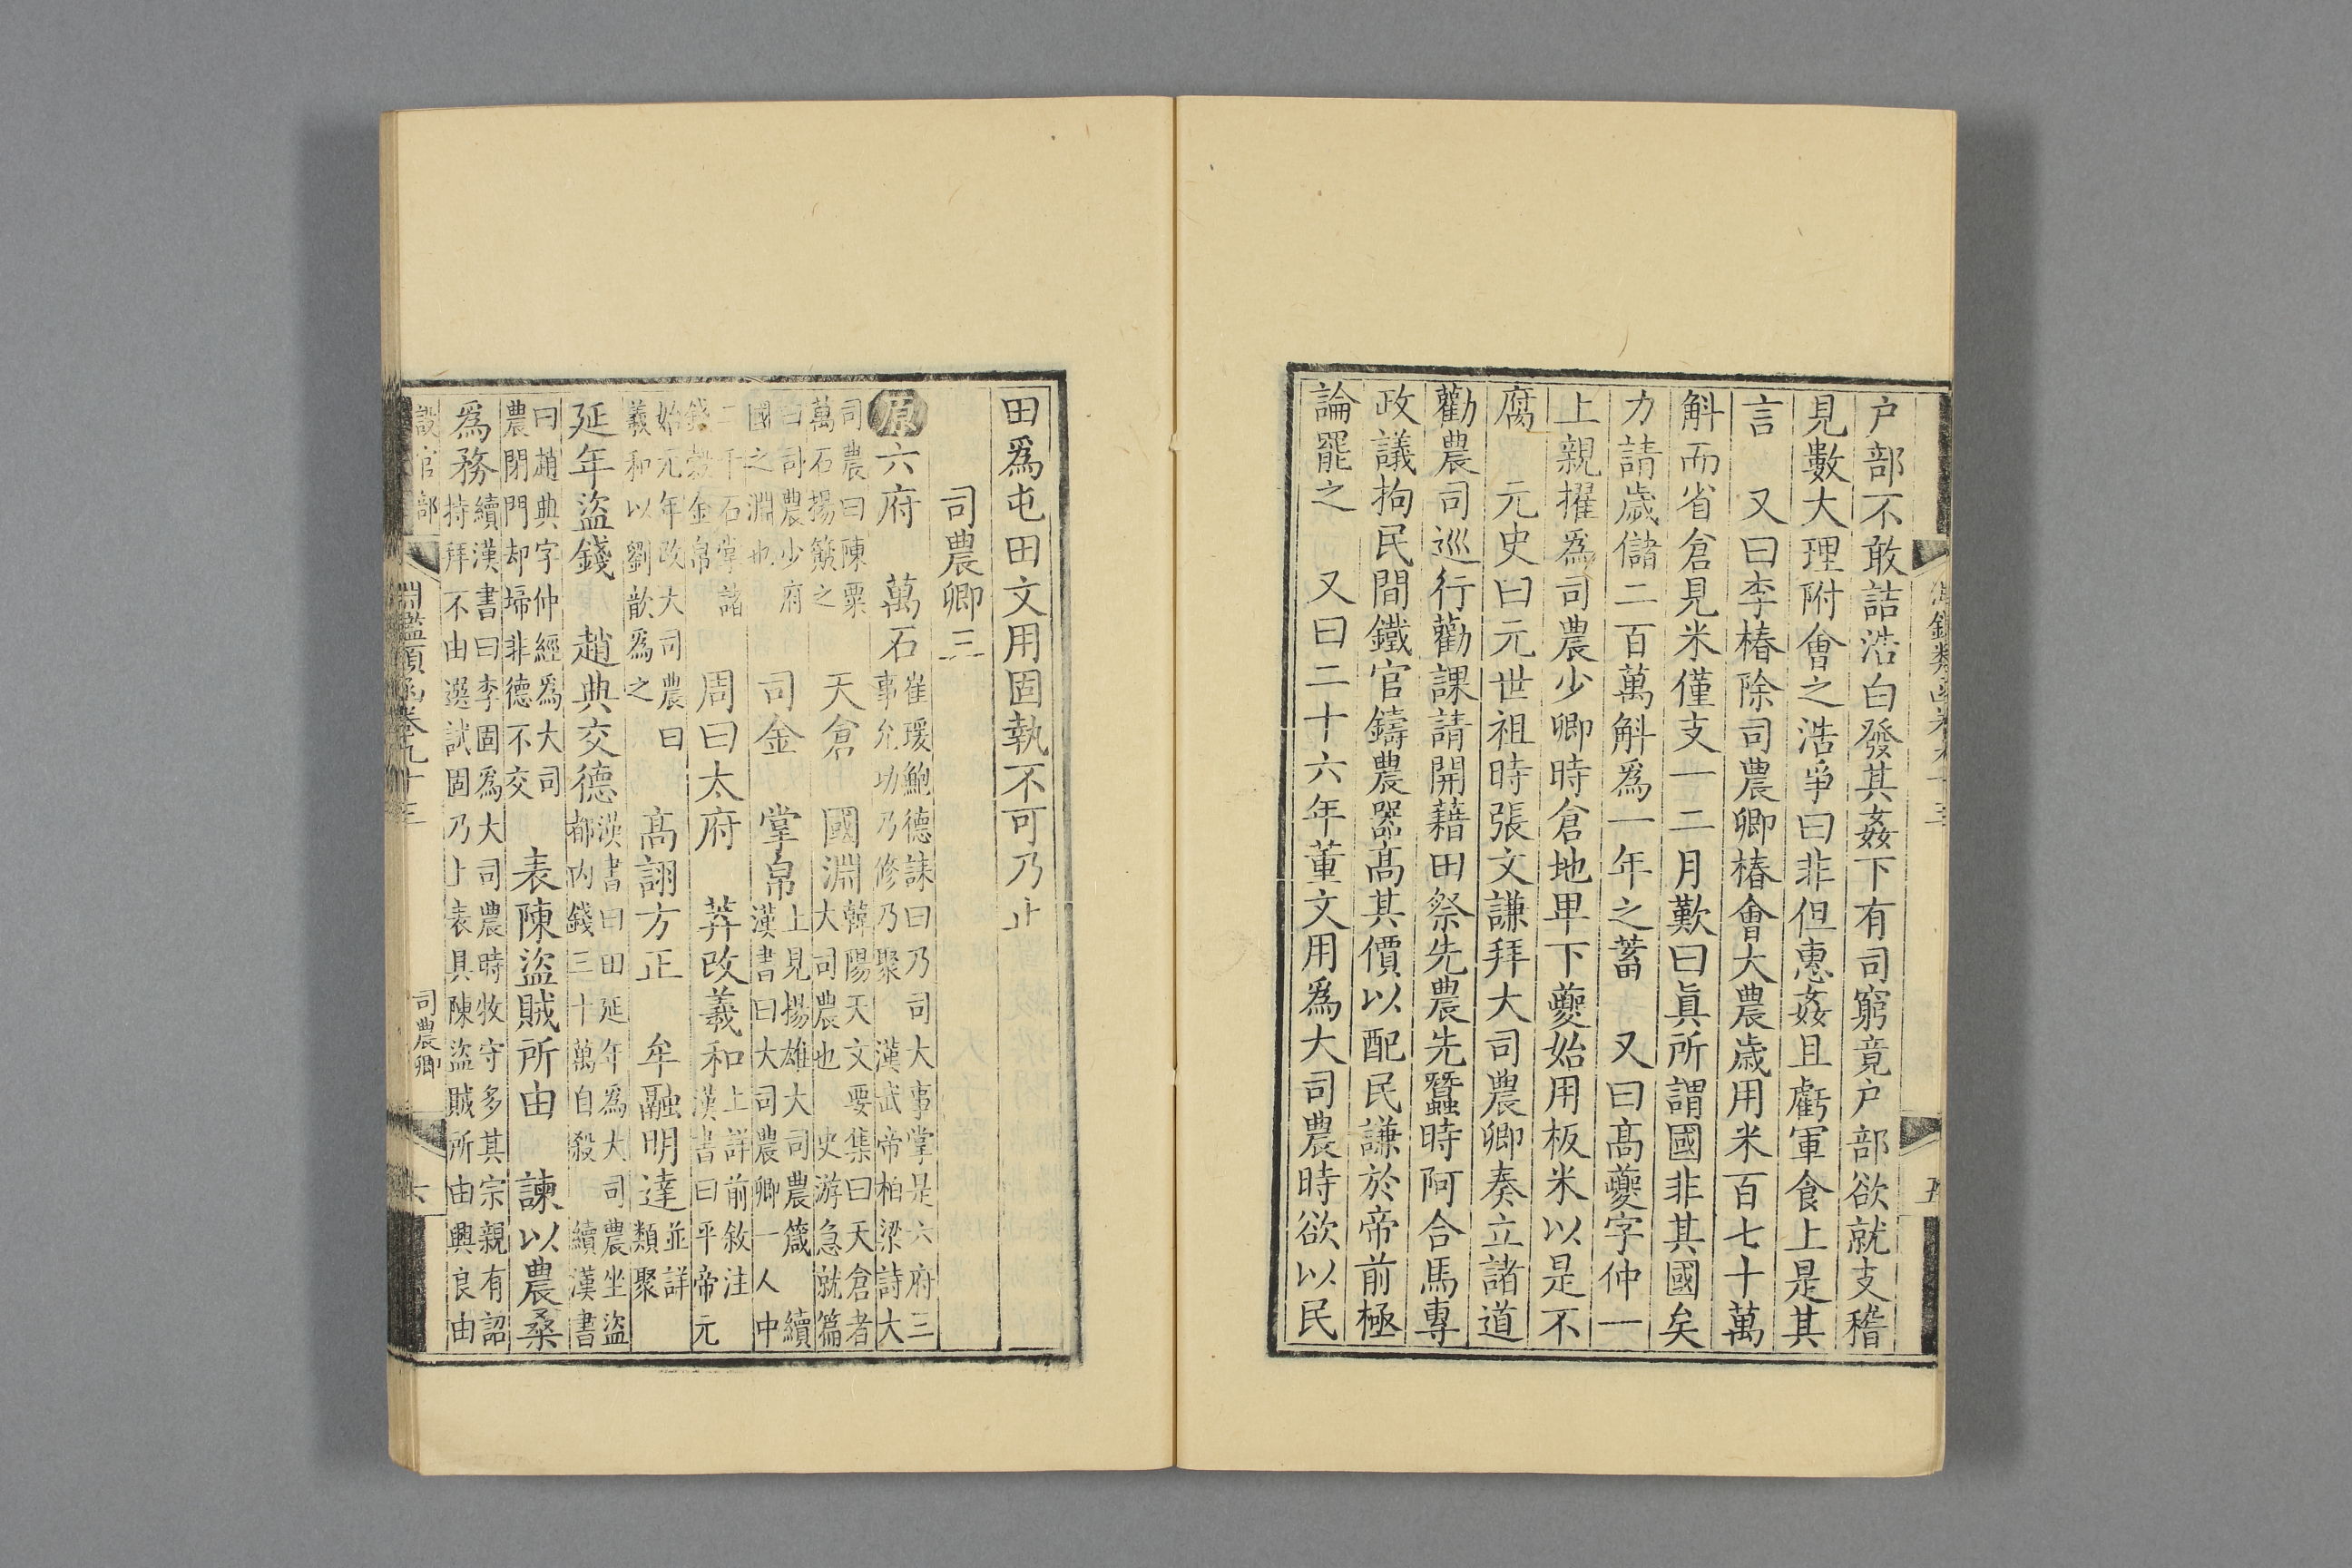 戸部不敢詰浩白發其姦下有司窮竟戸部欲就支稽
見數大理附會之浩爭曰非但惠姦且虧軍食上是其
言　又曰李椿除司農卿椿會大農歲用米百七十萬
斛而省倉見米僅支一二月歎曰眞所謂國非其國矣
力請歲儲二百萬斛爲一年之蓄　又曰髙夔字仲一
上親擢爲司農少卿時倉地卑下夔始用板米以是不
腐　元史曰元世祖時張文謙拜大司農卿奏立諸道
勸農司巡行勸課請開藉田祭先農先蠶時阿合馬專
政議拘民間鐵官鑄農器髙其價以配民謙於帝前極
論罷之　又曰二十六年董文用爲大司農時欲以民
田爲屯田文用固執不可乃止
司農卿三
原六府　萬石崔瑗鮑德誄曰乃司大事掌是六府三
事允功乃修乃聚　漢武帝柏梁詩大
司農曰陳粟
萬石揚簸之　天倉　國淵韓陽天文要集曰天倉者
大司農也　史游急就篇
曰司農少府
國之淵也　司金　掌帛上見揚雄大司農箴　續
漢書曰大司農卿一人中
二千石掌諸
錢穀金帛　周曰太府　莾改羲和上詳前敘注
漢書曰平帝元
始元年改大司農曰
羲和以劉歆爲之　髙詡方正　牟融明達並詳
類聚
延年盜錢　趙典交德漢書曰田延年爲大司農坐盜
都内錢三十萬自殺　續漢書
曰趙典字仲經爲大司
農閉門却埽非德不交　表陳盜賊所由　諫以農桑
爲務續漢書曰李固爲大司農時牧守多其宗親有詔
持拜不由選試固乃上表具陳盜賊所由興良由
設官部
淵鑑類函卷九十三
司農卿
六